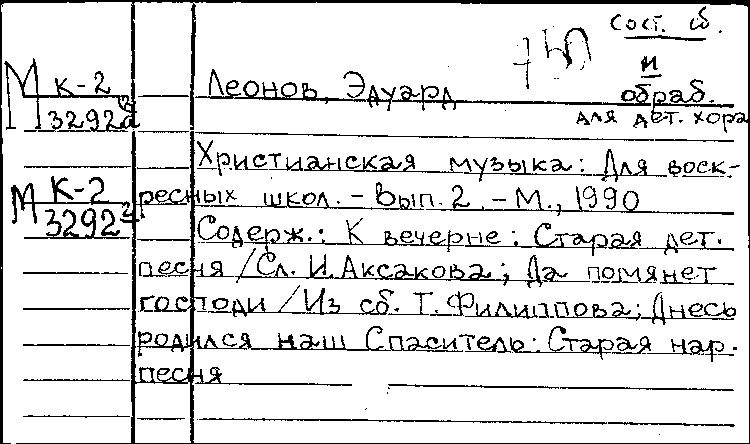 Сост. сб.
и
обраб.
для дет. хора
М К-2
3292а
Леонов, Эдуард
Христианская музыка: Для воск-
М К-2
32922
ресных школ. - Вып. 2. - М., 1990
Содерж.: К вечерне: Старая дет.
песня / Сл. И. Аксакова; Да помянет
господи / Из сб. Т. Филиппова; Днесь
родился наш Спаситель: Старая нар.
песня